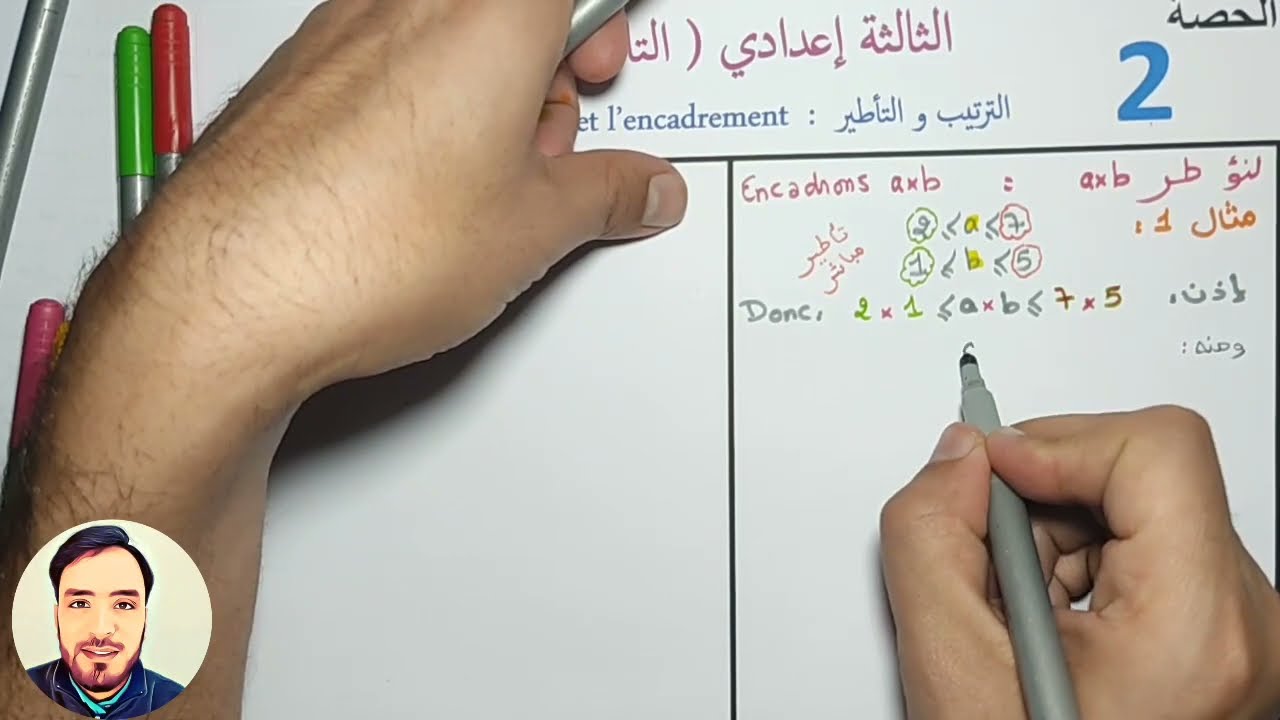 الحصة
2
الثالثة إعدادي ( التا
et l'encadrement : الترتيب و التأطير
Encadrons axb : لنؤطر axb
مثال 1 :
2 ⩽ a ⩽ 7
1 ⩽ b ⩽ 5
تأطير
مباشر
Donc, 2 × 1 ⩽ a × b ⩽ 7 × 5 إذن،
ومنه :